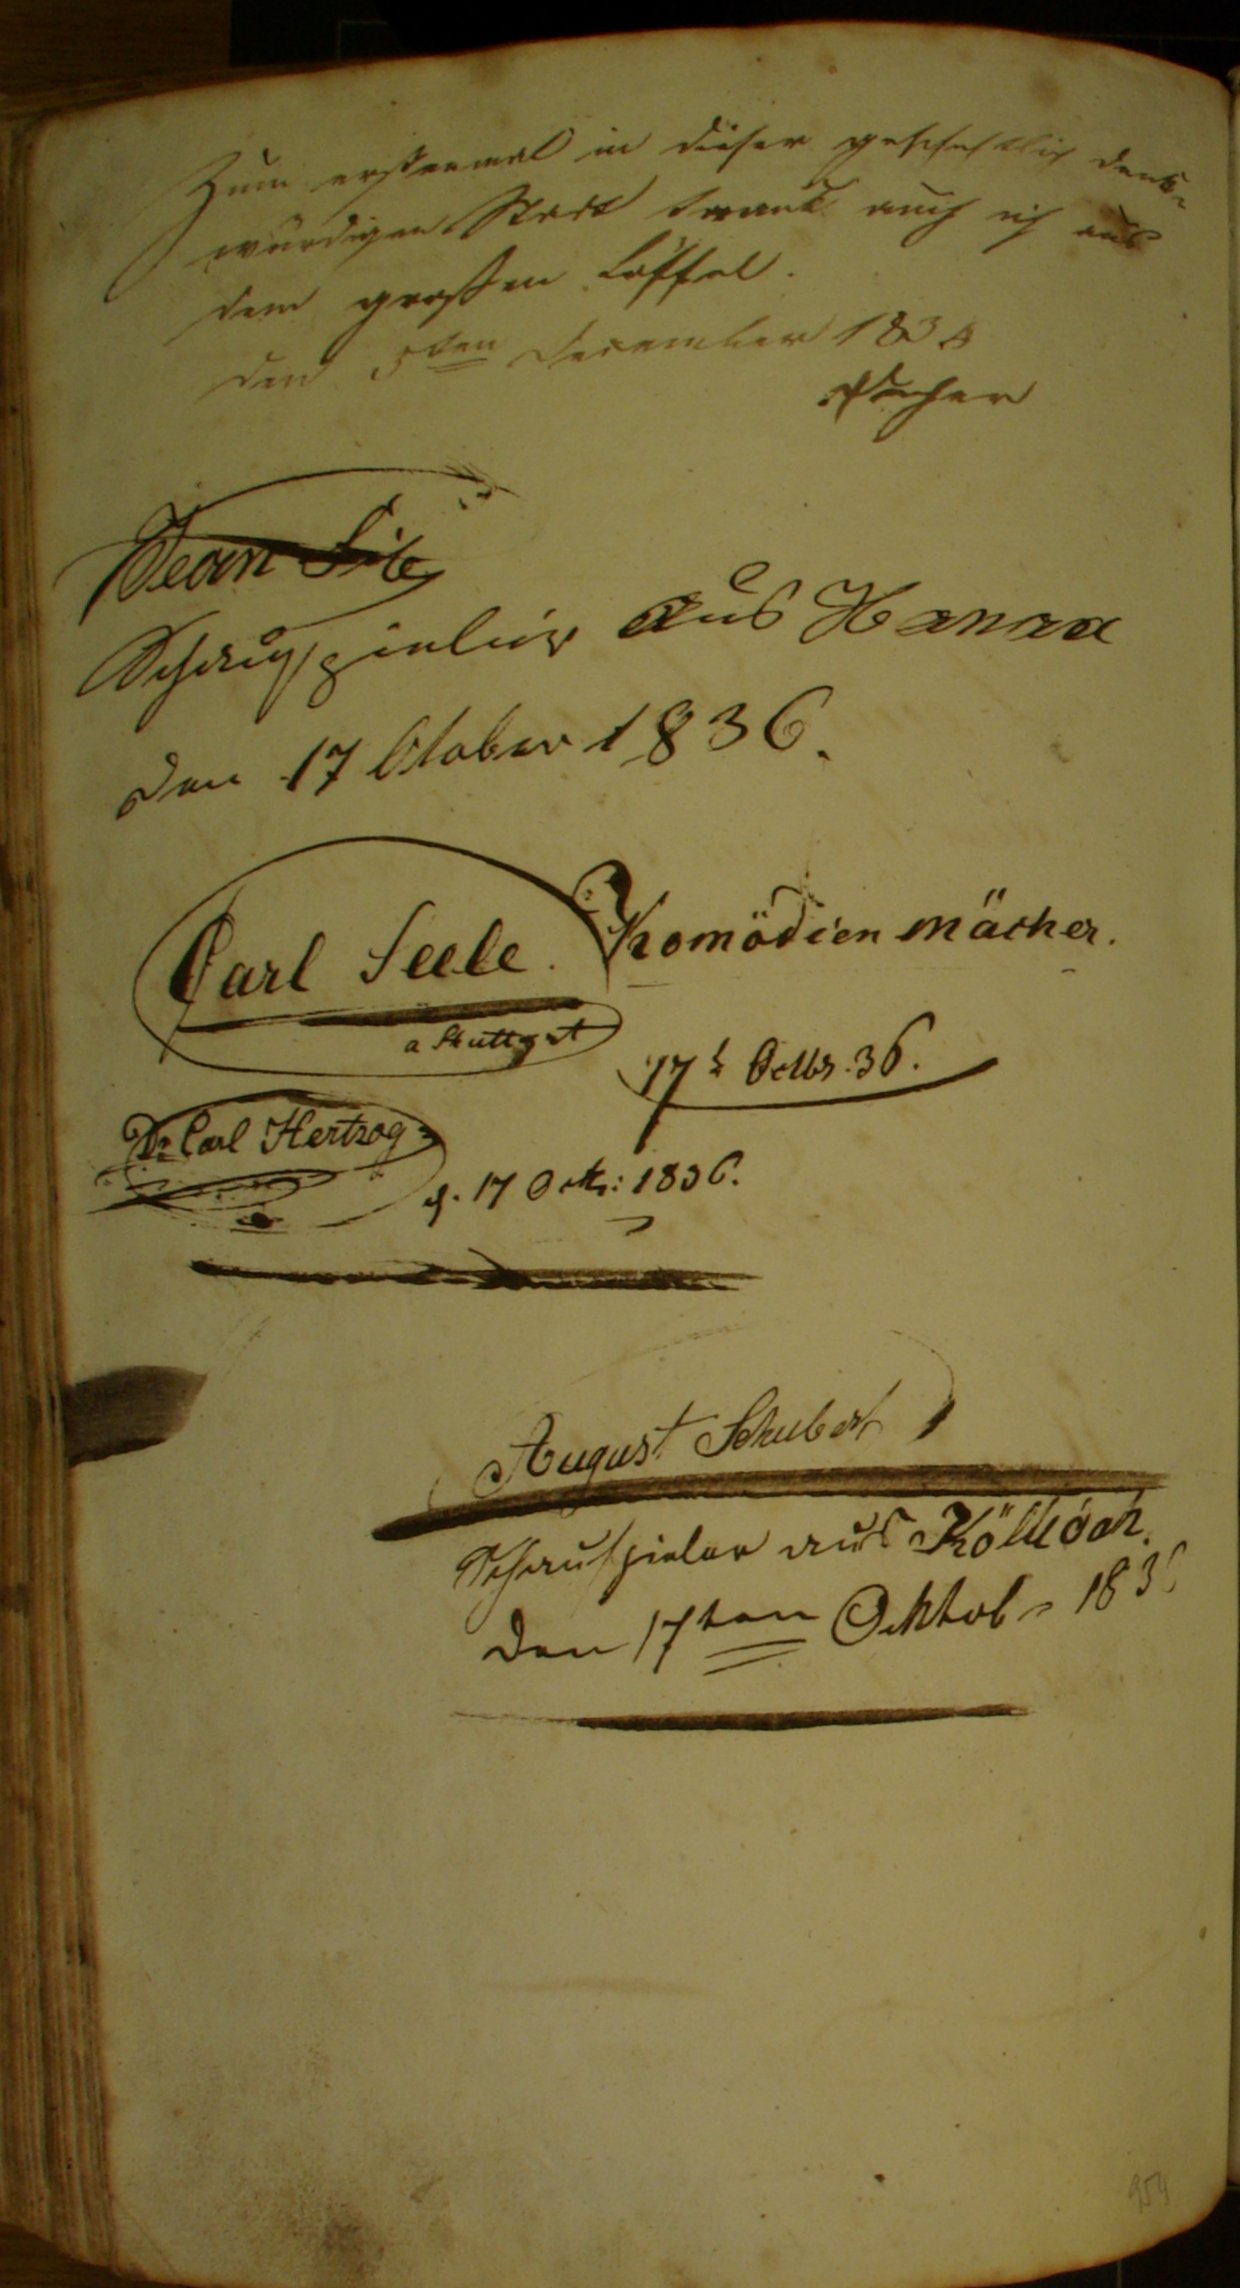 Zum erstenmal in dieser geschichtlich denk-
würdigen Stadt trank auch ich aus
dem großen Löffel.
den 5ten December 183
Jean
Schauspieler aus Hanau
den 17 October 1836.
Carl Seele. Komödienmächer.
a Stuttgart
17t Octbr. 36.
Dr Carl Hertzog
d. 17 Octbr: 1836.
August Schubert
Schauspieler aus
den 17ten Oktob 1836
954